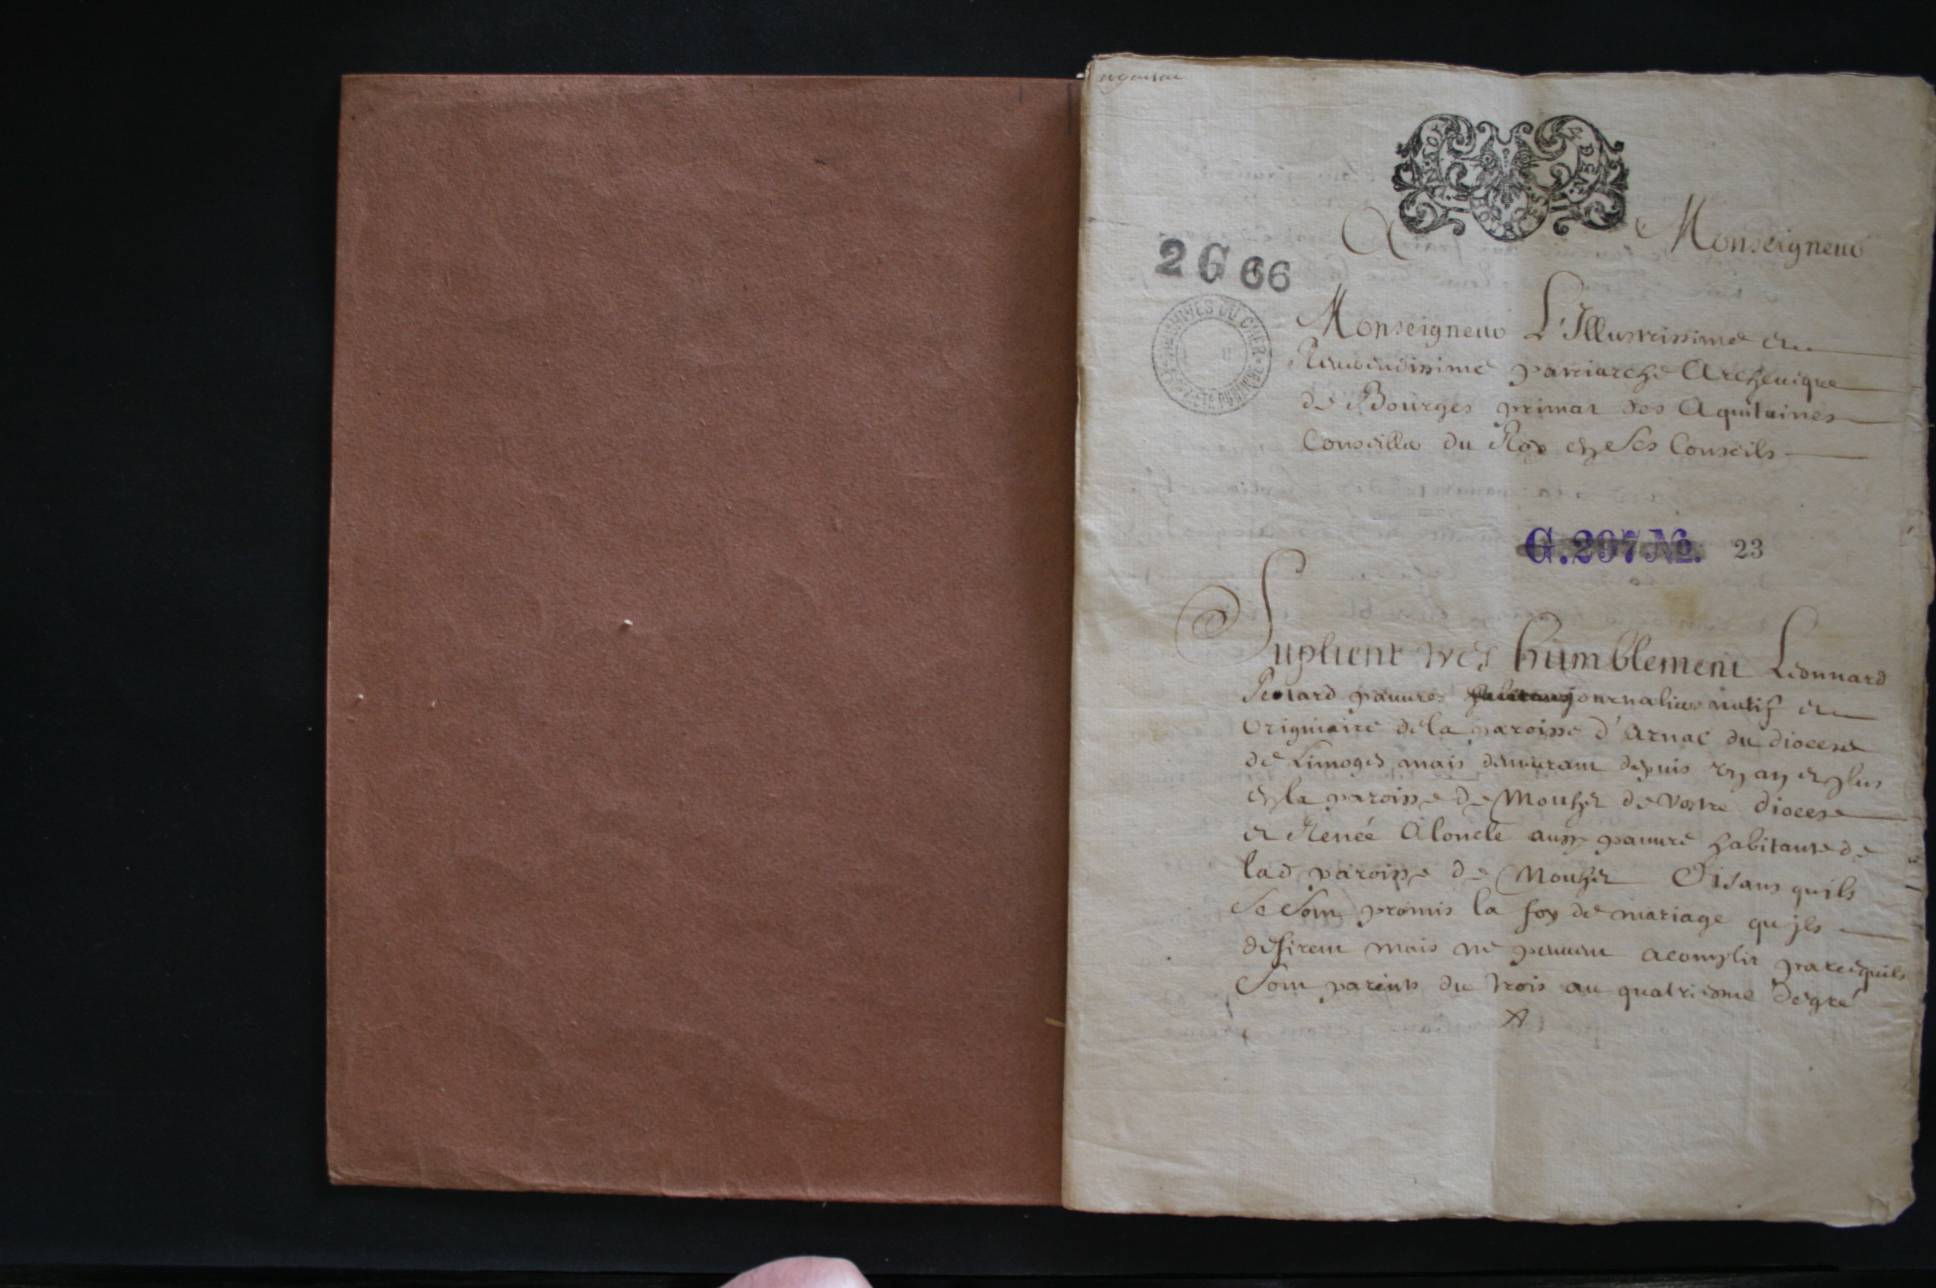 A Monseigneur
2 G 66
Monseigneur L'Illustrissime et
Reverendissime patriarche Archevique
de Bourges primat des Aquitaines
Conseiller du Roy en Ses Conseils
G.207 No. 23
Suplient tres humblement Leonnard
pauvres journalier natif et
originaire de la paroisse d'Arnac du diocese
de Limoges mais demeurant depuis un an et plus
en la paroisse de Mouhet de vostre diocese
et Renée Aloncle aussy pauvre habitante de
lad paroisse de Mouhet Disans quils
Se Sont promis la foy de mariage qu'jls
desirent mais ne peuvent acomplir parcequils
Sont parents du trois au quatriesme degré